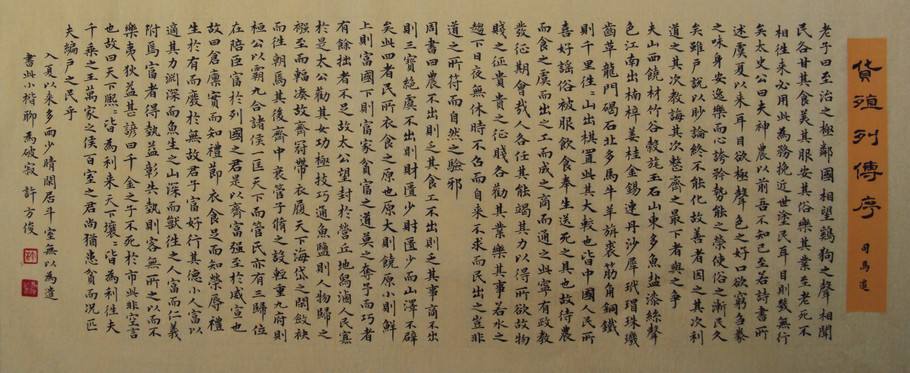 貨殖列傳序
司馬遷
老子曰至治之極鄰國相望鷄狗之聲相聞
民各甘其食美其服安其俗樂其業至老死不
相往來必用此為務挽近世塗民耳目則幾無行
矣太史公曰夫神農以前吾不知已至若詩書所
述虞夏以來耳目欲極聲色之好口欲窮芻豢
之味身安逸樂而心誇矜勢能之榮使俗之漸民久
矣雖戶說以眇論終不能化故善者因之其次利
道之其次教誨其次整齊之最下者與之爭
夫山西饒材竹谷旄玉石山東多魚鹽漆絲聲
色江南出楠梓薑桂金錫連丹沙犀玳瑁珠璣
齒革龍門碣石北多馬牛羊旃裘筋角銅鐵
則千里往〻山出棋置此其大較也皆中國人民所
喜好謠俗被服飲食奉生送死之具也故待農
而食之虞而出之工而成之商而通之此寧有政教
發征期會哉人各任其能竭其力以得所欲故物
賤之征貴貴之征賤各勸其業樂其事若水之
趨下日夜無休時不召而自來不求而民出之豈非
道之所符而自然之驗邪
周書曰農不出則乏其食工不出則乏其事商不出
則三寶絕虞不出則財匱少財匱少而山澤不辟
矣此四者民所衣食之原也原大則饒原小則鮮
上則富國下則富家貧富之道莫之奪予而巧者
有餘拙者不足故太公望封於營丘地舄滷人民寡
於是太公勸其女功極技巧通魚鹽則人物歸之
襁至而輻湊故齊冠帶衣履天下海岱之間斂袂
而往朝焉其後齊中衰管子脩之設輕重九府則
桓公以霸九合諸侯一匡天下而管氏亦有三歸位
在陪臣富於列國之君是以齊富強至於威宣也
故曰倉廩實而知禮節衣食足而知榮辱禮
生於有而廢於無故君子富好行其德小人富以
適其力淵深而魚生之山深而獸往之人富而仁義
附焉富者得執益彰失執則客無所之以而不
樂夷狄益甚諺曰千金之子不死於市此非空言
也故曰天下熙〻皆為利來天下壤〻皆為利往夫
千乘之王萬家之侯百室之君尚猶患貧而況匹
夫編戶之民乎
入夏以來多雨少晴閑居斗室無以為遣
書此小楷聊為破寂 許方俊